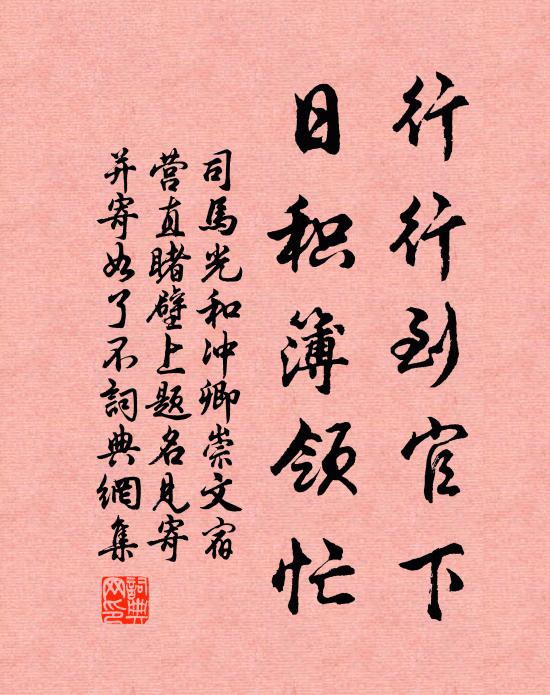 行行到官下
日积簿领忙
司馬光和冲卿崇文宿
营直睹壁上题名见寄
并寄如了不詞典網集
詞典
网印